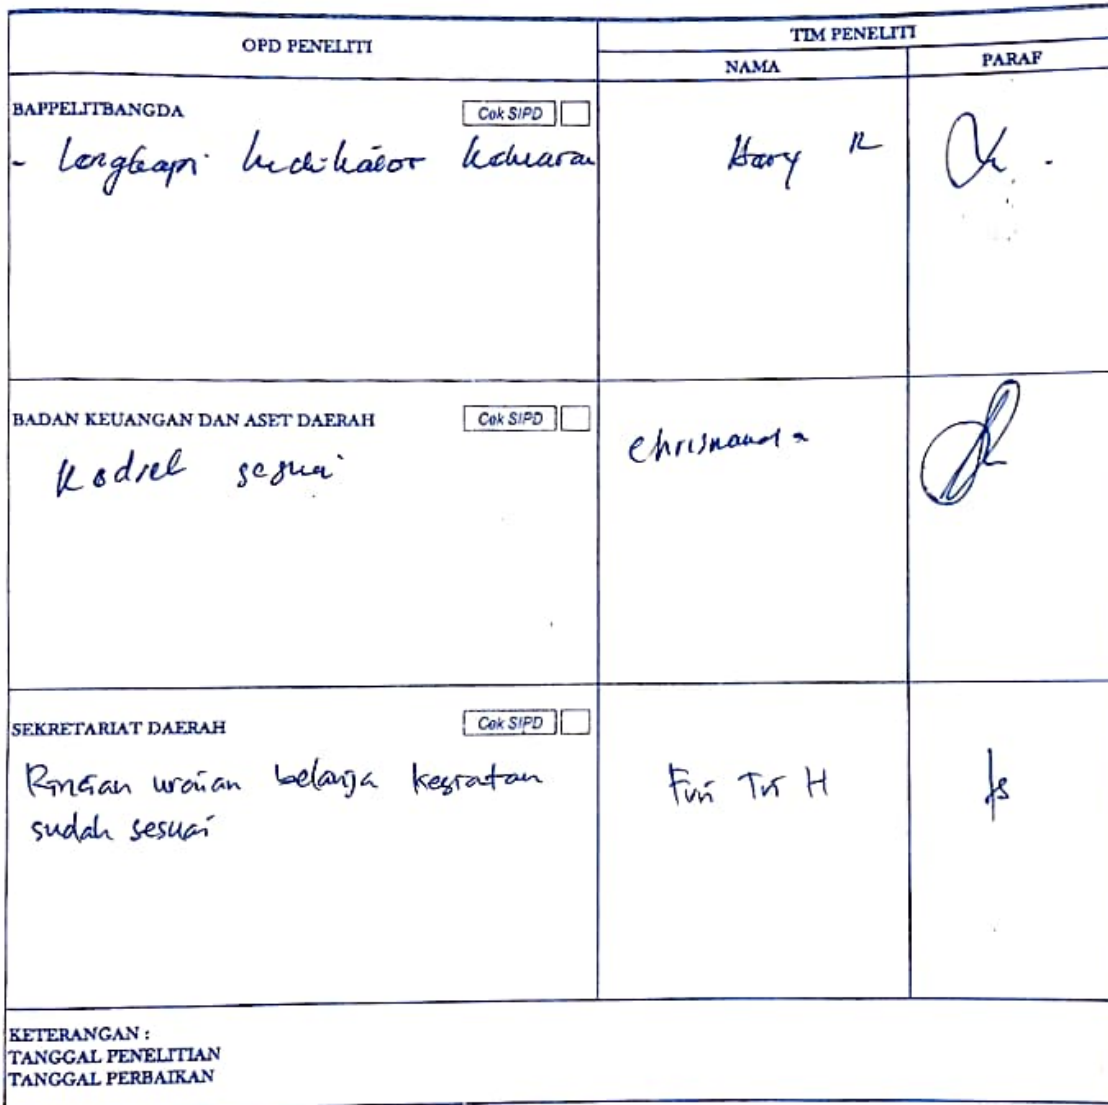 OPD PENELITI
TIM PENELITI
NAMA
PARAF
BAPPELITBANGDA
Cek SIPD
- Lengkapi Indikator Keluaran
Hary R
BADAN KEUANGAN DAN ASET DAERAH
Cek SIPD
Kodrek sesuai
Chrisnanda
SEKRETARIAT DAERAH
Cek SIPD
Rincian uraian belanja kegiatan
sudah sesuai
Tri H
KETERANGAN :
TANGGAL PENELITIAN
TANGGAL PERBAIKAN